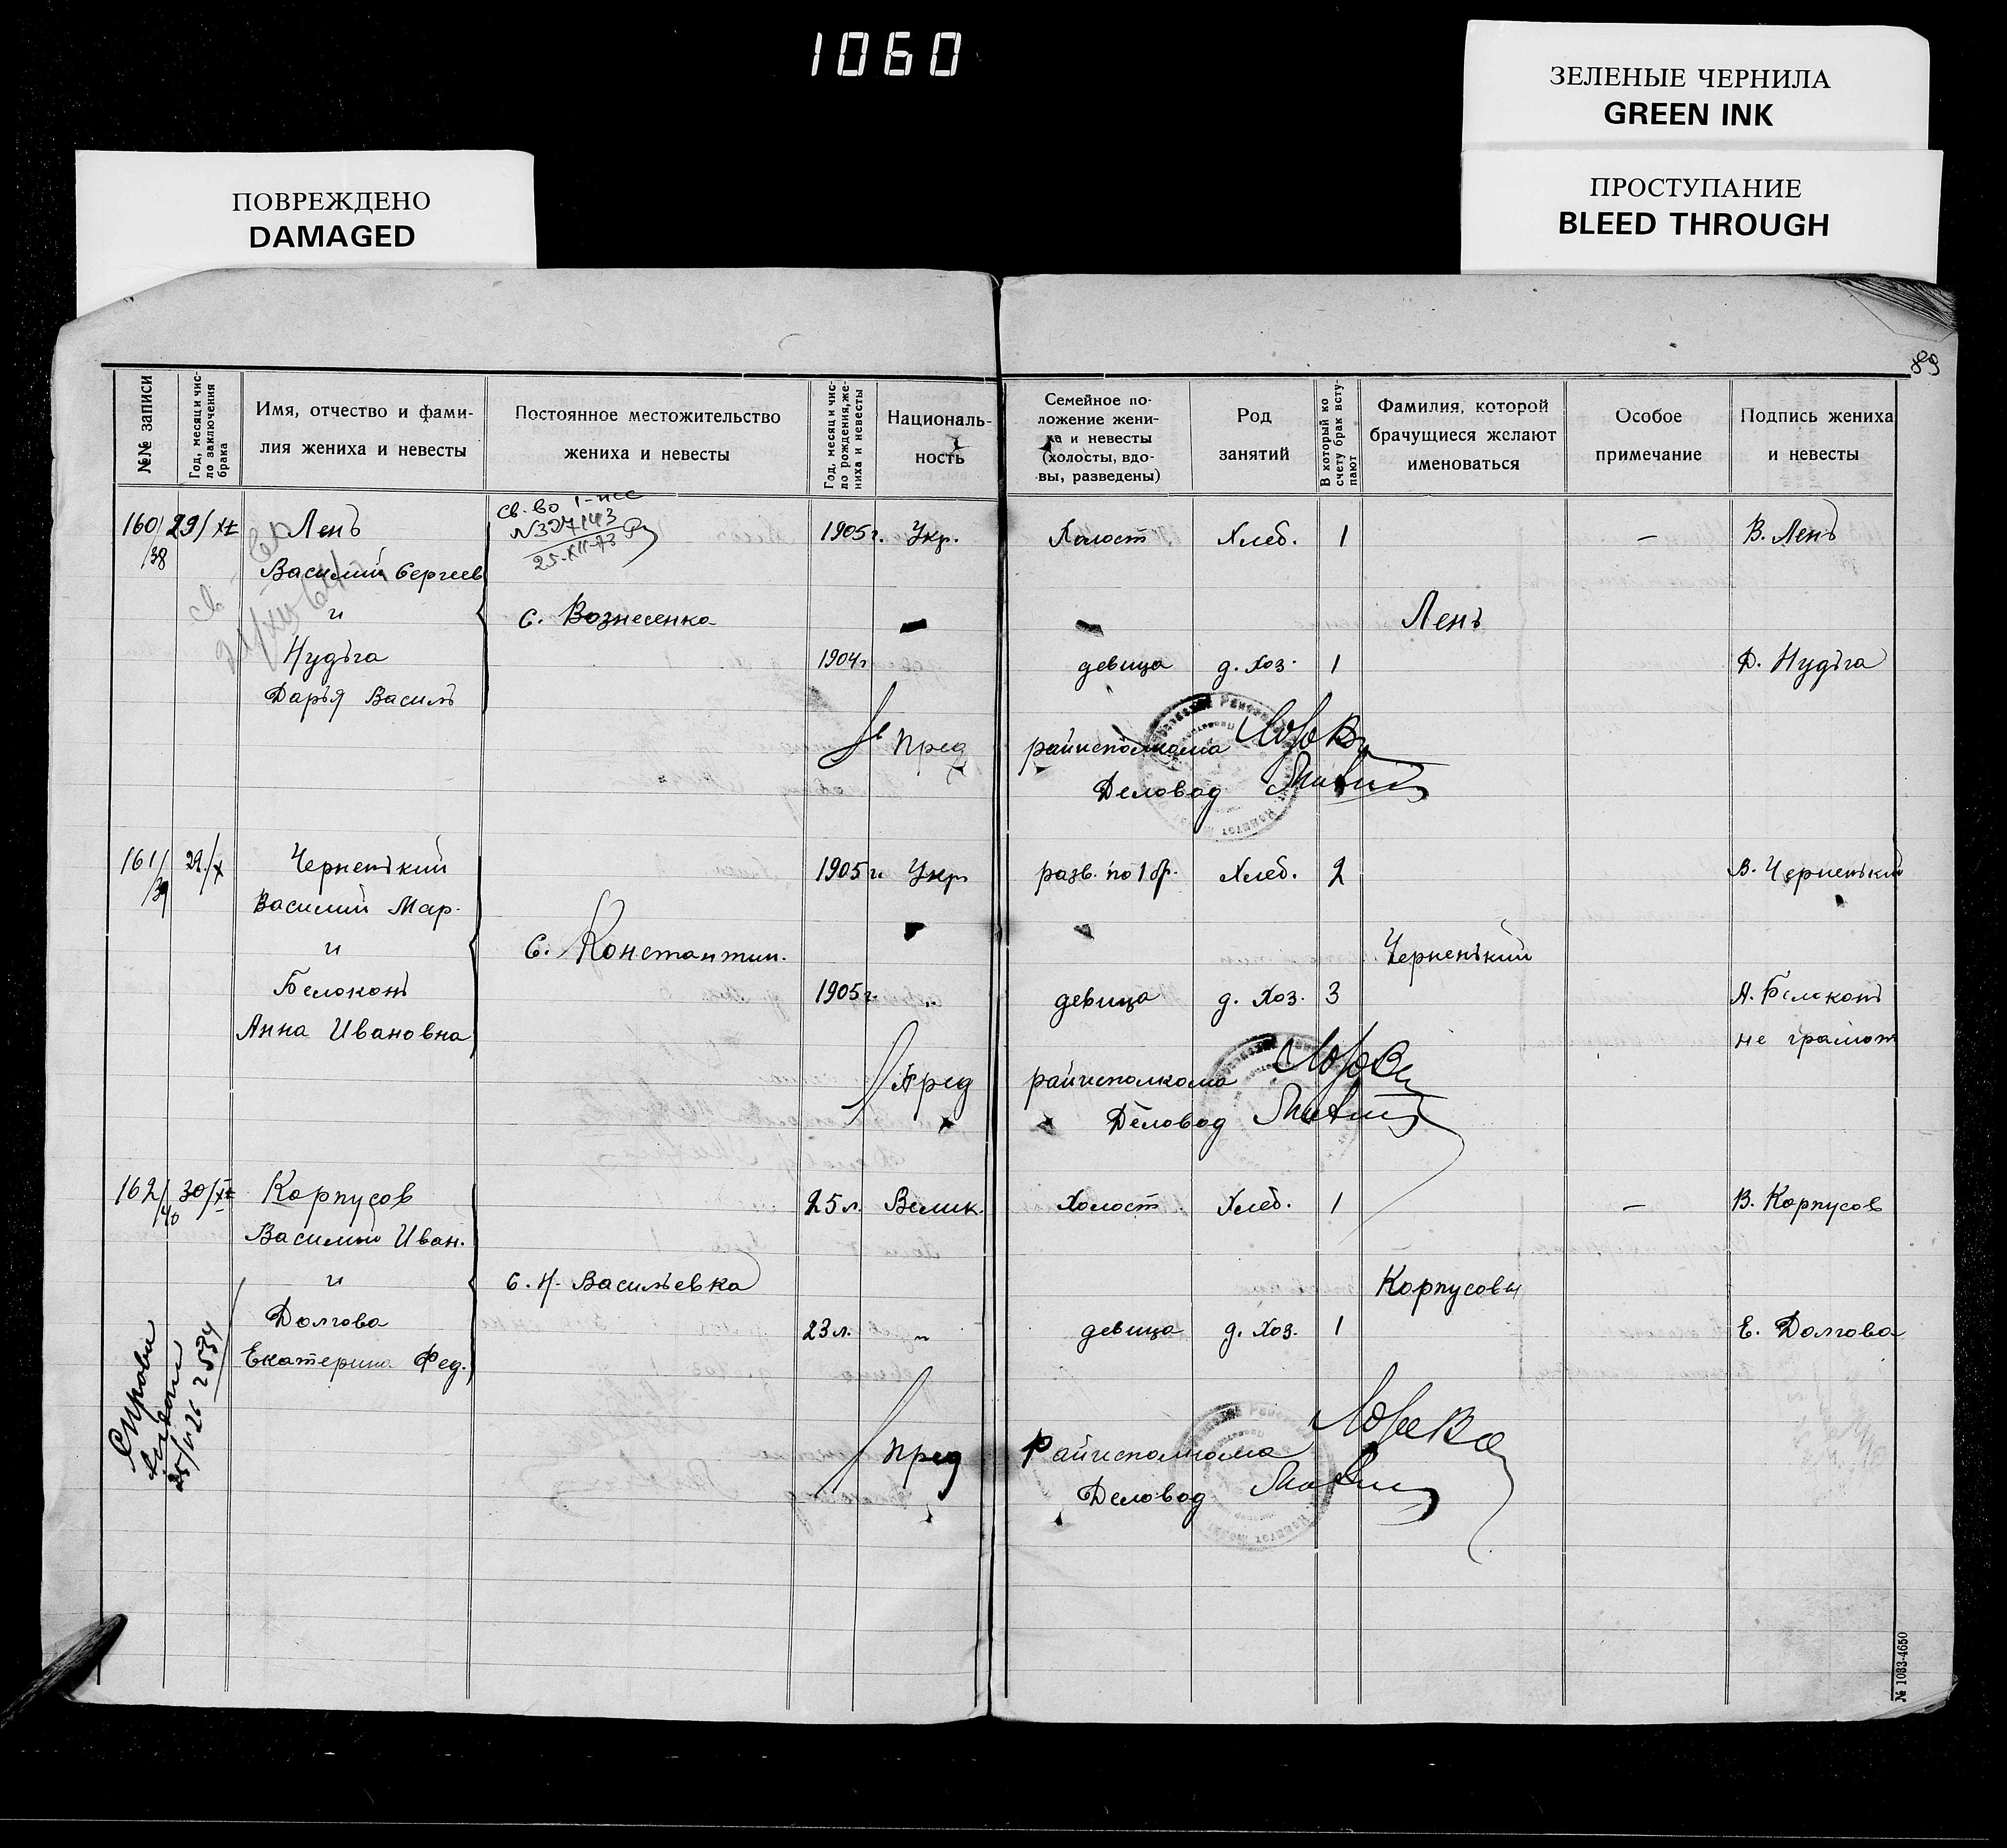 1060
ЗЕЛЕНЫЕ ЧЕРНИЛА
GREEN INK
ПРОСТУПАНИЕ
BLEED THROUGH
ПОВРЕЖДЕНО
DAMAGED
89
№№ записи
Год, месяц и чис-
ло заключения
брака
Имя, отчество и фами-
лия жениха и невесты
Постоянное местожительство
жениха и невесты
Год, месяц и чис-
ло рождения, же-
ниха и невесты
Националь-
ность
Семейное по-
ложение жени-
ха и невесты
(холосты, вдо-
вы, разведены)
Род
занятий
В который ко
счету брак всту-
пают
Фамилия, которой
брачущиеся желают
именоваться
Особое
примечание
Подпись жениха
и невесты
св-во
№327143
25-XII-73
160/38 29/XI Лень 1905г. Укр. Холост Хлеб. 1 — В. Лень
Василий Сергеев
и с. Вознесенка Лень
Нудьга 1904г девица д. хоз. 1 Д. Нудьга
Дарья Василь
Пред райисполкома
Деловод
161/39 29/X Черненький 1905г. Укр. разв. по 1 бр. Хлеб. 2 В. Черненький
Василий Мар.
и с. Константин. Черненький
Белоконь 1905г. " девица д. хоз. 3 А. Белоконь
Анна Ивановна не грамот
Пред райисполкома
Деловод
162/40 30/XI Корпусов 25 л. Велик. Холост Хлеб. 1 — В. Корпусов
Василий Иван.
и с. Н. Васильевка Корпусовы
Долгова 23 л. " девица д. хоз. 1 Е. Долгова
Екатерина Фед.
2534
Пред Райисполкома
Деловод
№ 1033-4650